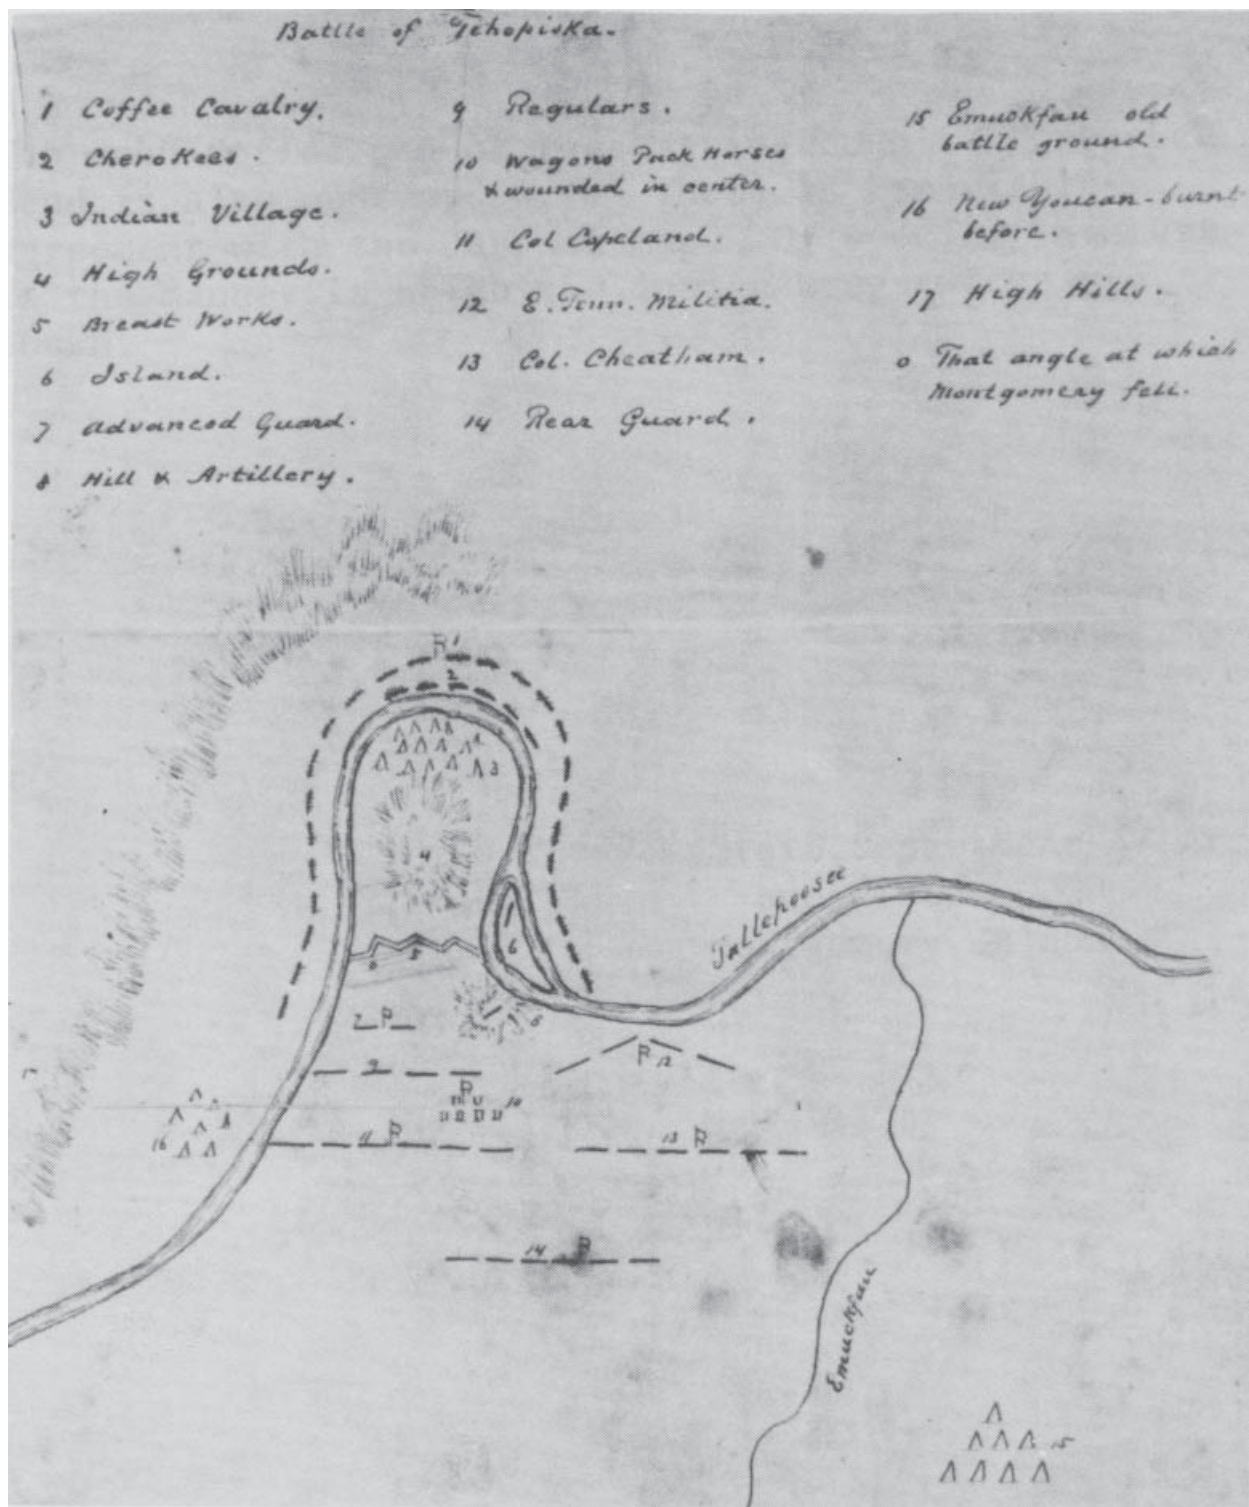 Battle of Tehopiska.
1 Coffee Cavalry.
2 Cherokees.
3 Indian Village.
4 High Grounds.
5 Breast Works.
6 Island.
7 Advanced Guard.
8 Hill & Artillery.
9 Regulars.
10 Wagons Pack Horses
& wounded in center.
11 Col Copeland.
12 E. Tenn. Militia.
13 Col. Cheatham.
14 Rear Guard.
15 Emuckfau old
battle ground.
16 New Youcan - burnt
before.
17 High Hills.
0 That angle at which
Montgomery fell.
1
2
3
4
Tallepoosee
6
0 5
8
7
9
12
10
16
11
13
14
Emuckfau
15